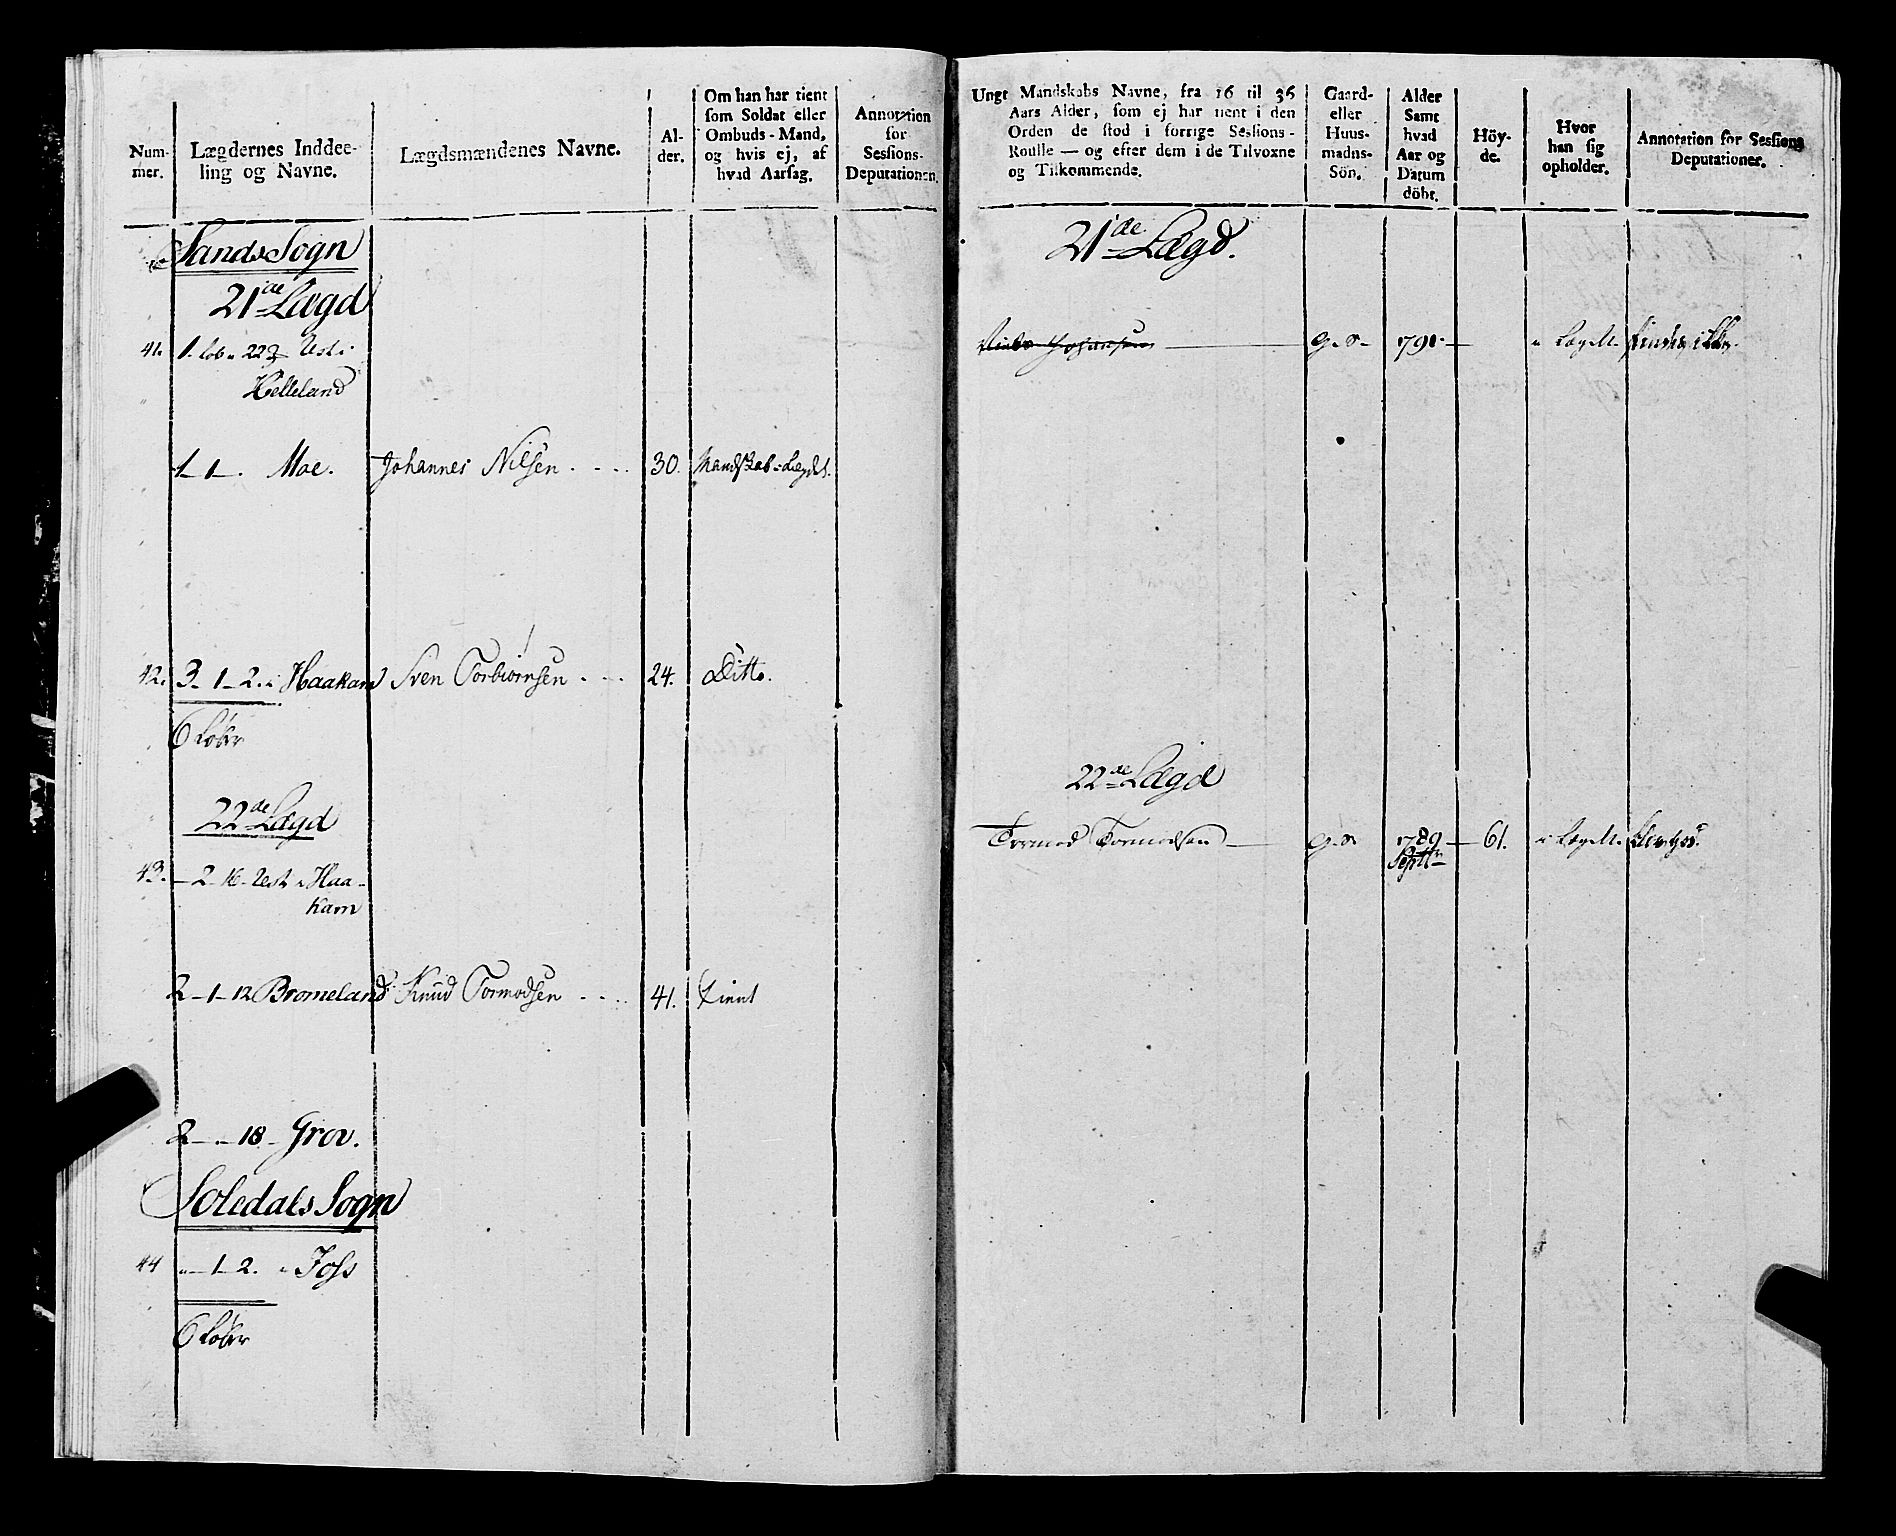 Num-
mer.
Lægdernes Inddee-
ling og Navne.
Lægdsmændenes Navne.
Al-
der.
Om han har tient
som Soldat eller
Ombuds-Mand,
og hvis ej, af
hvad Aarsag.
Annotation
for
Sessions-
Deputationen.
Sands Sogn
21de Lægd
41. 1. Løb " 22
Helleland
1 1 . Moe. Johannes Nilsen . - - - 30. Mandskab i Lægdet.
42. 3 - 1 - 2. i Haakam Sven Torbiørnsen . - - - 24. Ditto.
6 Løber
22de Lægd
43. - 2 - 16 - i Haa-
kam
2 - 1 - 12 Bromeland Knud Tormodsen - - - 41. tient
2 - " - 18 - Grov.
Soledals Sogn
44 " - 1 - 2. i Joss
6 Løber
Ungt Mandskabs Navne, fra 16 til 36
Aars Alder, som ej har tient i den
Orden de stod i forrige Sessions-
Roulle — og efter dem i de Tilvoxne
og Tilkommende.
Gaard-
eller
Huus-
mands-
Sön.
Alder
Samt
hvad
Aar og
Datum
döbt.
Höy-
de.
Hvor
han sig
opholder.
Annotation for Sessions
Deputationer.
21de Lægd.
Johansen G. S. 1791 - i Lægdt. findes ikke.
22de Lægd
Tormod Tormodsen — G. S. 1789 - 61. i Lægdt.
Septbr